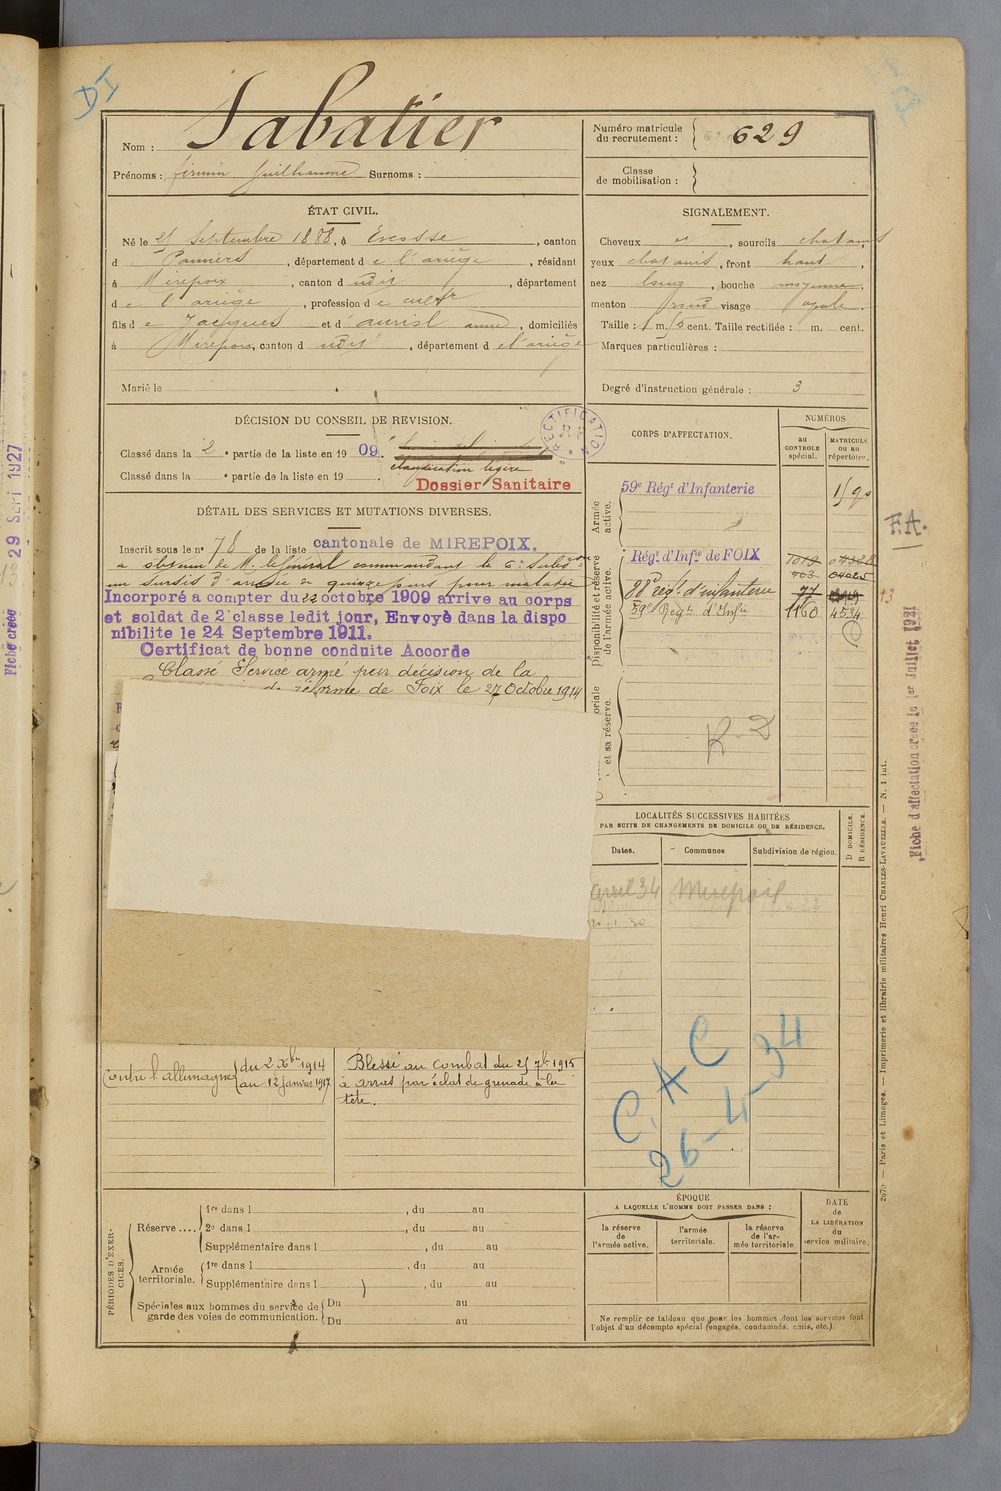 DI
Nom : Sabatier
Prénoms : firmin Guilhaume Surnoms :
Numéro matricule du recrutement : 629
Classe de mobilisation :
ÉTAT CIVIL.
Né le 21 Septembre 1888, à , canton
d Pamiers , département de l'ariège , résidant
à Mirepoix , canton d udit , département
de l'ariège , profession de cultr
fils de Jacques et d'auriol anne , domiciliés
à Mirepoix, canton d udit , département de l'ariège
Marié le
SIGNALEMENT.
Cheveux , sourcils chatains
yeux chatains , front haut ,
nez long , bouche moyenne ,
menton rond visage ovale .
Taille : 1 m. cent. Taille rectifiée : m. cent.
Marques particulières :
Degré d'instruction générale : 3
DÉCISION DU CONSEIL DE REVISION.
Classé dans la 2 e partie de la liste en 19 09.
Classé dans la e partie de la liste en 19
claudication légère
Dossier Sanitaire
RECTIFICATION
DÉTAIL DES SERVICES ET MUTATIONS DIVERSES.
Inscrit sous le n° 78 de la liste cantonale de MIREPOIX.
a obtenu de M. le Général commandant la 6e Subdon
un sursis d'arrivée de quinze jours pour maladie
Incorporé a compter du 22 octobre 1909 arrive au corps
et soldat de 2e classe ledit jour, Envoyé dans la dispo
nibilite le 24 Septembre 1911.
Certificat de bonne conduite Accorde
Classé Service armé par décision de la
de réforme de Foix le 27 Octobre 1914
Contre l'allemagne du 2 Xbre 1914
au 12 janvier 1917
Blessé au combat du 25 7bre 1915
à arras par éclat de grenade à la
tête.
CORPS D'AFFECTATION.
NUMÉROS
au CONTROLE spécial.
MATRICULE OU AU répertoire.
Armée active.
59e Régt d'Infanterie
Disponibilité et réserve de l'armée active.
Régt d'Infie de FOIX 1019
703 04025
88e régt d'infanterie 77
59e Régt d'Infie 1160 4534
13
oriale et sa réserve.
R-D
LOCALITÉS SUCCESSIVES HABITÉES
PAR SUITE DE CHANGEMENTS DE DOMICILE OU DE RÉSIDENCE.
Dates. Communes Subdivision de région. D DOMICILE. R RÉSIDENCE.
avril 34 Mirepoix
C.A.C
26-4-34
PÉRIODES D'EXERCICES.
Réserve .... 1re dans l , du au
2e dans l , du au
Supplémentaire dans l , du au
Armée territoriale. 1re dans l , du au
Supplémentaire dans l , du au
Spéciales aux hommes du service de garde des voies de communication. Du au
Du au
ÉPOQUE
A LAQUELLE L'HOMME DOIT PASSER DANS :
la réserve de l'armée active.
l'armée territoriale.
la réserve de l'armée territoriale
DATE de LA LIBÉRATION du service militaire.
Ne remplir ce tableau que pour les hommes dont les services font
l'objet d'un décompte spécial (engagés, condamnés, omis, etc.).
2679 — Paris et Limoges. — Imprimerie et librairie militaires Henri CHARLES-LAVAUZELLE. — N. 1 int.
F.A.
Fiche d'affectation créée le 1er Juillet 1921
Fiche créée 29 Sept 1927